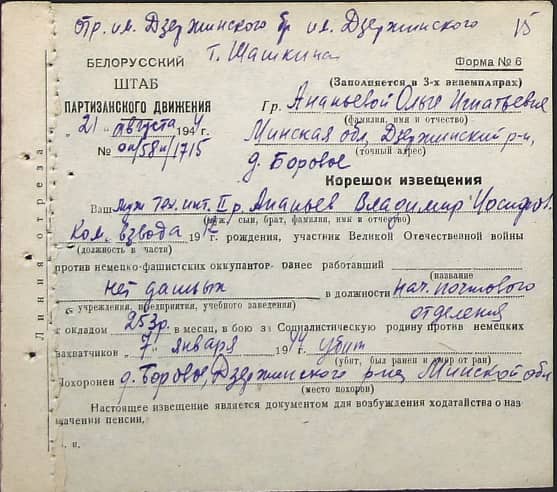 Отр. им. Дзержинского бр им. Дзержинского 15
т. Шашкина
БЕЛОРУССКИЙ
ШТАБ
ПАРТИЗАНСКОГО ДВИЖЕНИЯ
"21" августа 1944 г.
№ оп/58н/1715
Форма № 6
(Заполняется в 3-х экземплярах)
Гр. Ананьевой Ольге Игнатьевне
(фамилия, имя и отчество)
Минская обл, Дзержинский р-н,
(точный адрес)
д. Боровое
Корешок извещения
Ваш муж тех. инт. II р. Ананьев Владимир Иосифов.
(муж, сын, брат, фамилия, имя и отчество)
Ком. взвода 1912 г. рождения, участник Великой Отечественной войны
(должность в части)
против немецко-фашистских оккупантов ранее работавший
(название
нет данных в должности нач. почтового
учреждения, предприятия, учебного заведения)
отделения
с окладом 253 р. в месяц, в бою за Социалистическую родину против немецких
захватчиков "7" января 1944 убит
(убит, был ранен и умер от ран)
Похоронен д. Боровое, Дзержинского р-на Минской обл
(место похорон)
Настоящее извещение является документом для возбуждения ходатайства о наз-
начении пенсии.
и.
Линия отреза